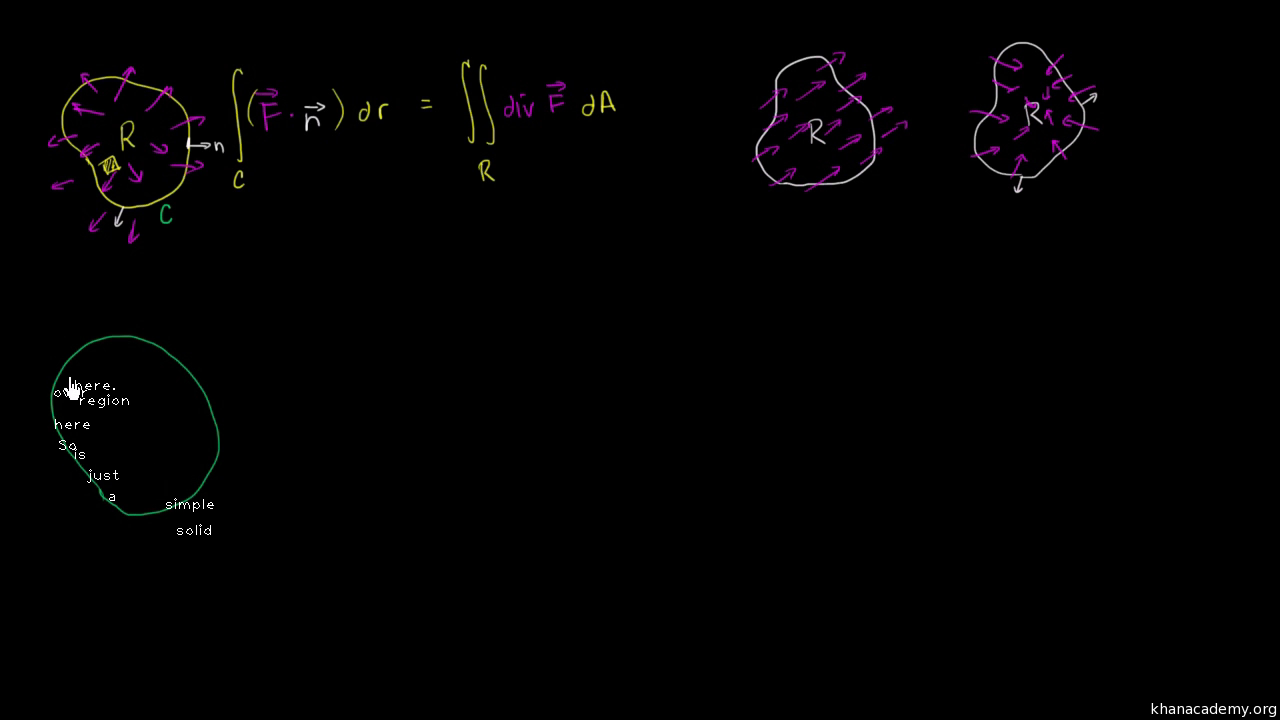 R
n
C
∫ ( F⃗ · n⃗ ) dr = ∬ div F⃗ dA
C
R
R
R
here.
over
region
here
So
is
just
a
simple
solid
khanacademy.org